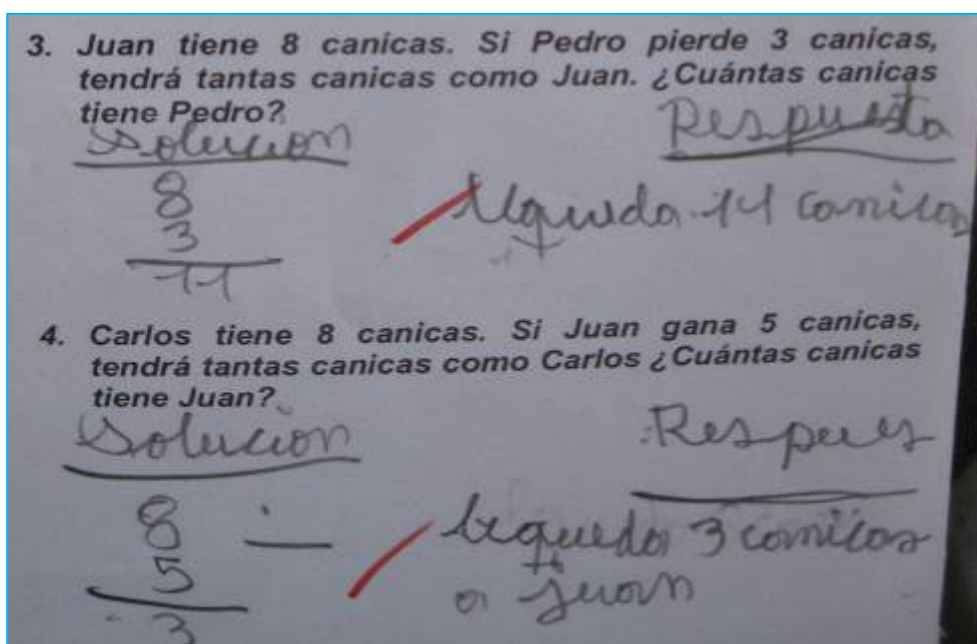 3. Juan tiene 8 canicas. Si Pedro pierde 3 canicas,
tendrá tantas canicas como Juan. ¿Cuántas canicas
tiene Pedro?
Solucion
Respuesta
8
3
11
canicas
4. Carlos tiene 8 canicas. Si Juan gana 5 canicas,
tendrá tantas canicas como Carlos ¿Cuántas canicas
tiene Juan?
Solucion
Respues
8 -
5
3
3 canicas
a Juan